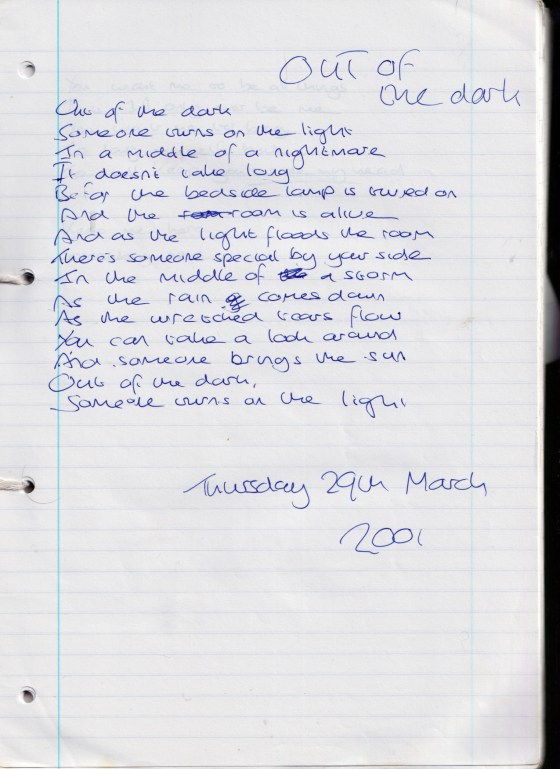 OUT OF
the dark
Out of the dark
Someone turns on the light
In a middle of a nightmare
It doesn't take long
Befor the bedside lamp is turned on
And the room is alive
And as the light floods the room
There's someone special by your side
In the middle of a storm
As the rain comes down
As the wretched tears flow
You can take a look around
And someone brings the sun
Out of the dark,
Someone turns on the light
Thursday 29th March
2001